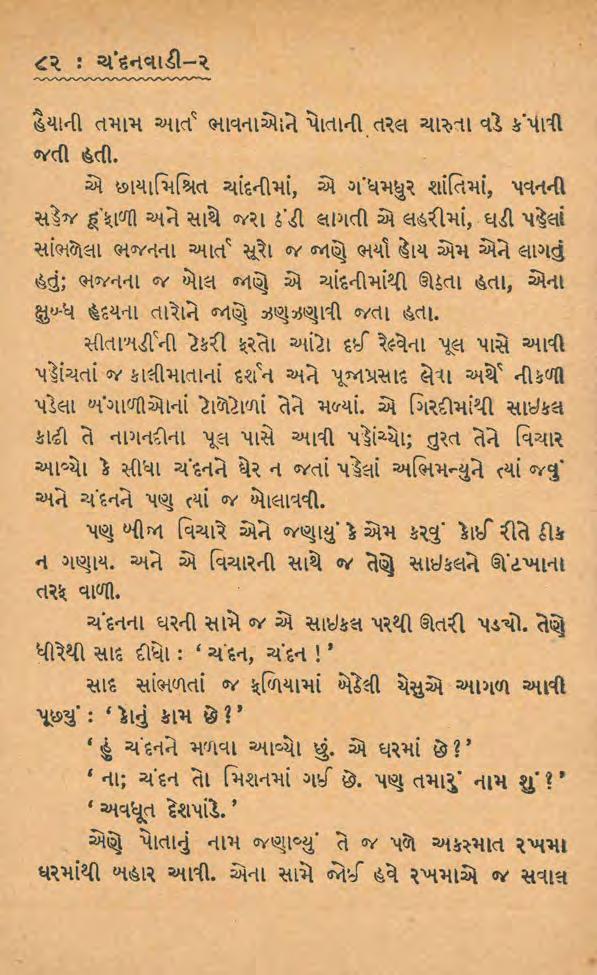 ૮૨ : ચંદનવાડી–૨
હૈયાની તમામ આર્ત ભાવનાઓને પોતાની તરલ ચારુતા વડે કંપાવી
જતી હતી.
એ છાયામિશ્રિત ચાંદનીમાં, એ ગંધમધુર શાંતિમાં, પવનની
સહેજ હૂંફાળી અને સાથે જરા ઠંડી લાગતી એ લહરીમાં, ઘડી પહેલાં
સાંભળેલા ભજનના આર્ત સૂરો જ જાણે ભર્યા હોય એમ એને લાગતું
હતું; ભજનના જ બોલ જાણે એ ચાંદનીમાંથી ઊઠતા હતા, એના
ક્ષુબ્ધ હૃદયના તારોને જાણે ઝણઝણાવી જતા હતા.
સીતાબર્ડીની ટેકરી ફરતો આંટો દઈ રેલ્વેના પૂલ પાસે આવી
પહોંચતાં જ કાલીમાતાનાં દર્શન અને પૂજાપ્રસાદ લેવા અર્થે નીકળી
પડેલા બંગાળીઓનાં ટોળેટોળાં તેને મળ્યાં. એ ગિરદીમાંથી સાઇકલ
કાઢી તે નાગનદીના પૂલ પાસે આવી પહોંચ્યો; તુરત તેને વિચાર
આવ્યો કે સીધા ચંદનને ઘેર ન જતાં પહેલાં અભિમન્યુને ત્યાં જવું
અને ચંદનને પણ ત્યાં જ બોલાવવી.
પણ બીજા વિચારે એને જણાયું કે એમ કરવું કોઈ રીતે ઠીક
ન ગણાય. અને એ વિચારની સાથે જ તેણે સાઇકલને ઊંટખાના
તરફ વાળી.
ચંદનના ઘરની સામે જ એ સાઇકલ પરથી ઊતરી પડયો. તેણે
ધીરેથી સાદ દીધો : ‘ ચંદન, ચંદન ! ’
સાદ સાંભળતાં જ ફળિયામાં બેઠેલી યેસુએ આગળ આવી
પૂછ્યું : ‘ કોનું કામ છે ? ’
‘ હું ચંદનને મળવા આવ્યો છું. એ ઘરમાં છે ? ’
‘ ના; ચંદન તો મિશનમાં ગઈ છે. પણ તમારું નામ શું ? ’
‘ અવધૂત દેશપાંડે. ’
એણે પોતાનું નામ જણાવ્યું તે જ પળે અકસ્માત રખમા
ઘરમાંથી બહાર આવી. એના સામે જોઈ હવે રખમાએ જ સવાલ